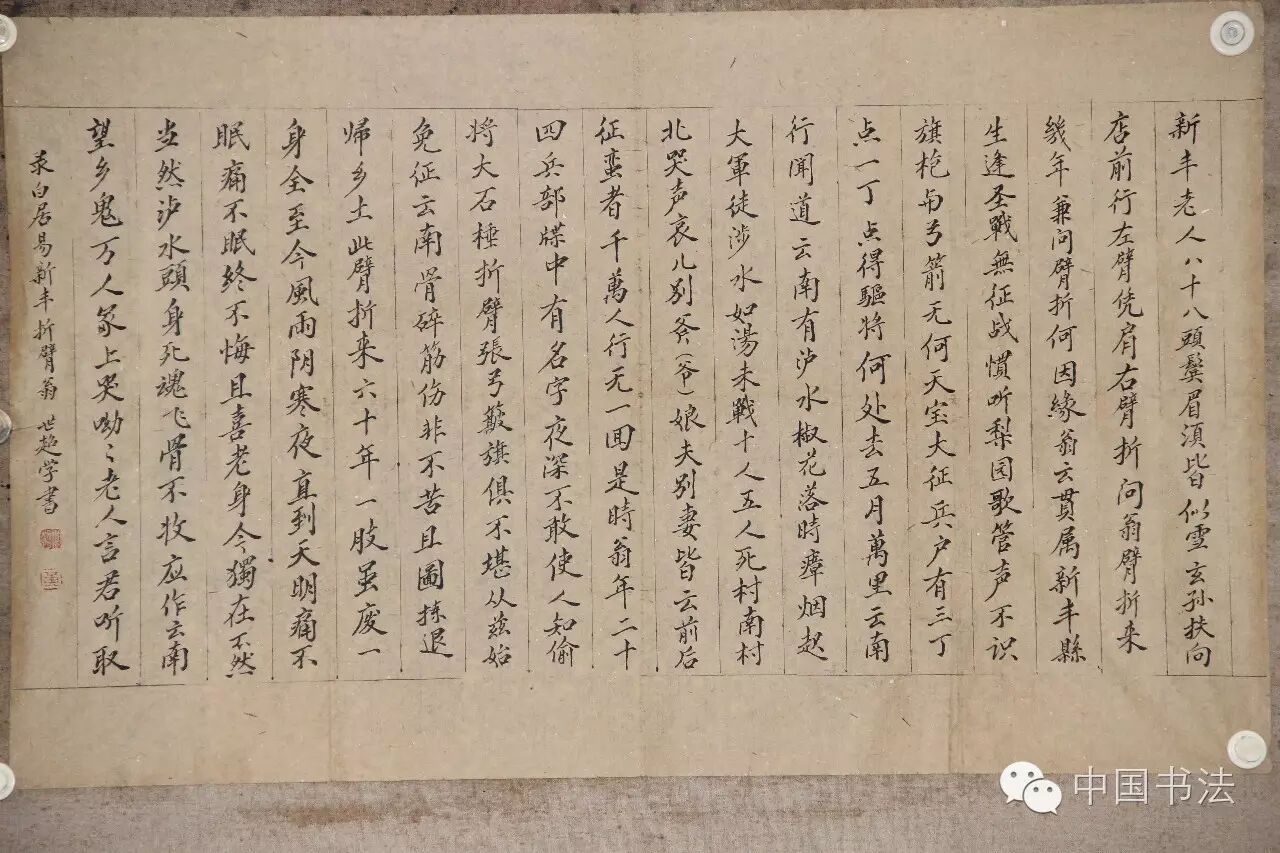 新丰老人八十八頭鬓眉湏皆似雪玄孙扶向
店前行左臂凭肩右臂折问翁臂折来
幾年兼问臂折何因緣翁云貫属新丰縣
生逢圣戰無征战慣听梨园歌管声不识
旗枪与弓箭无何天宝大征兵户有三丁
点一丁点得驅将何处去五月萬里云南
行闻道云南有泸水椒花落時瘴烟起
大軍徒涉水如湯未戰十人五人死村南村
北哭声哀儿别爷(爷)娘夫别妻皆云前后
征蛮者千萬人行无一回是時翁年二十
四兵部牒中有名字夜深不敢使人知偷
将大石棰折臂張弓簸旗俱不堪从茲始
免征云南骨碎筋伤非不苦且圖拣退
帰乡土此臂折来六十年一肢虽废一
身全至今風雨阴寒夜直到天明痛不
眠痛不眠终不悔且喜老身今獨在不然
当然泸水頭身死魂飞骨不收应作云南
望乡鬼万人冢上哭呦〻老人言君听取
录白居易新丰折臂翁 世超学書
中国书法